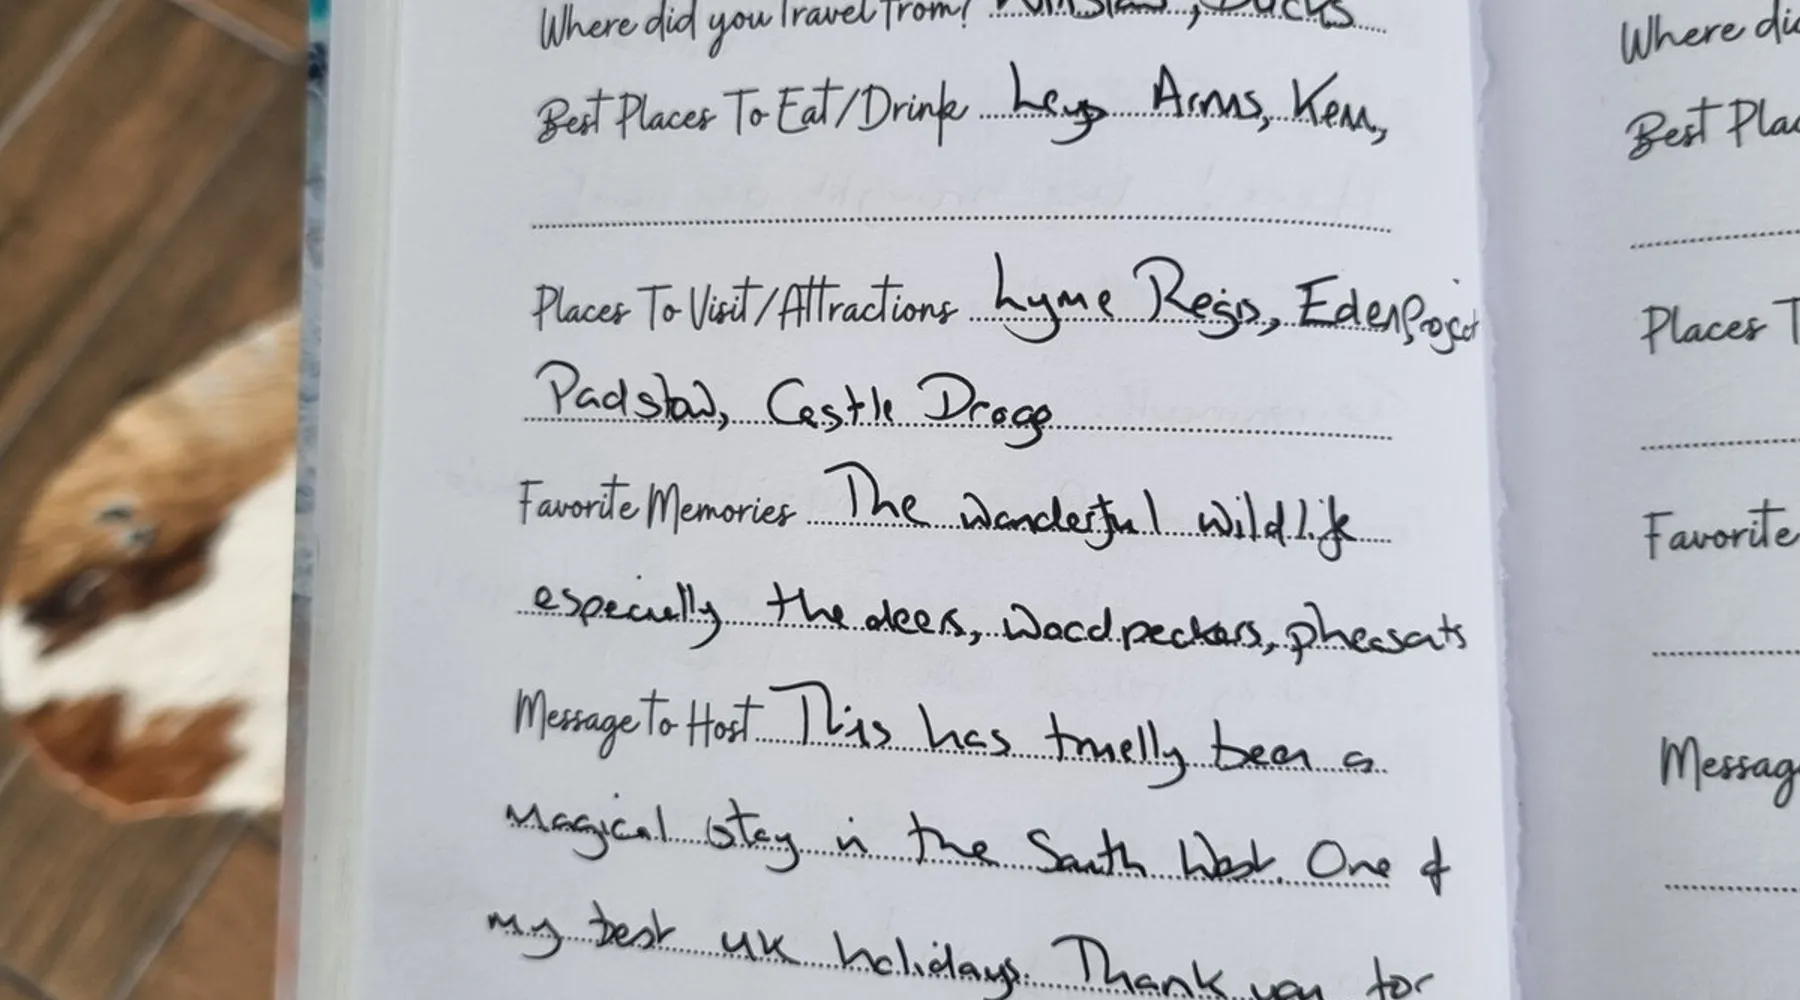 Where did you Travel From? Winslow, Bucks
Best Places To Eat/Drink Leys Arms, Kenn,
Places To Visit/Attractions Lyme Regis, Eden Project
Padstow, Castle Drogo
Favorite Memories The wonderful wildlife
especially the deers, woodpeckers, pheasats
Message to Host This has truelly been a
magical stay in the South West. One of
my best UK holidays. Thank you for
Where did
Best Plac
Places T
Favorite
Messag